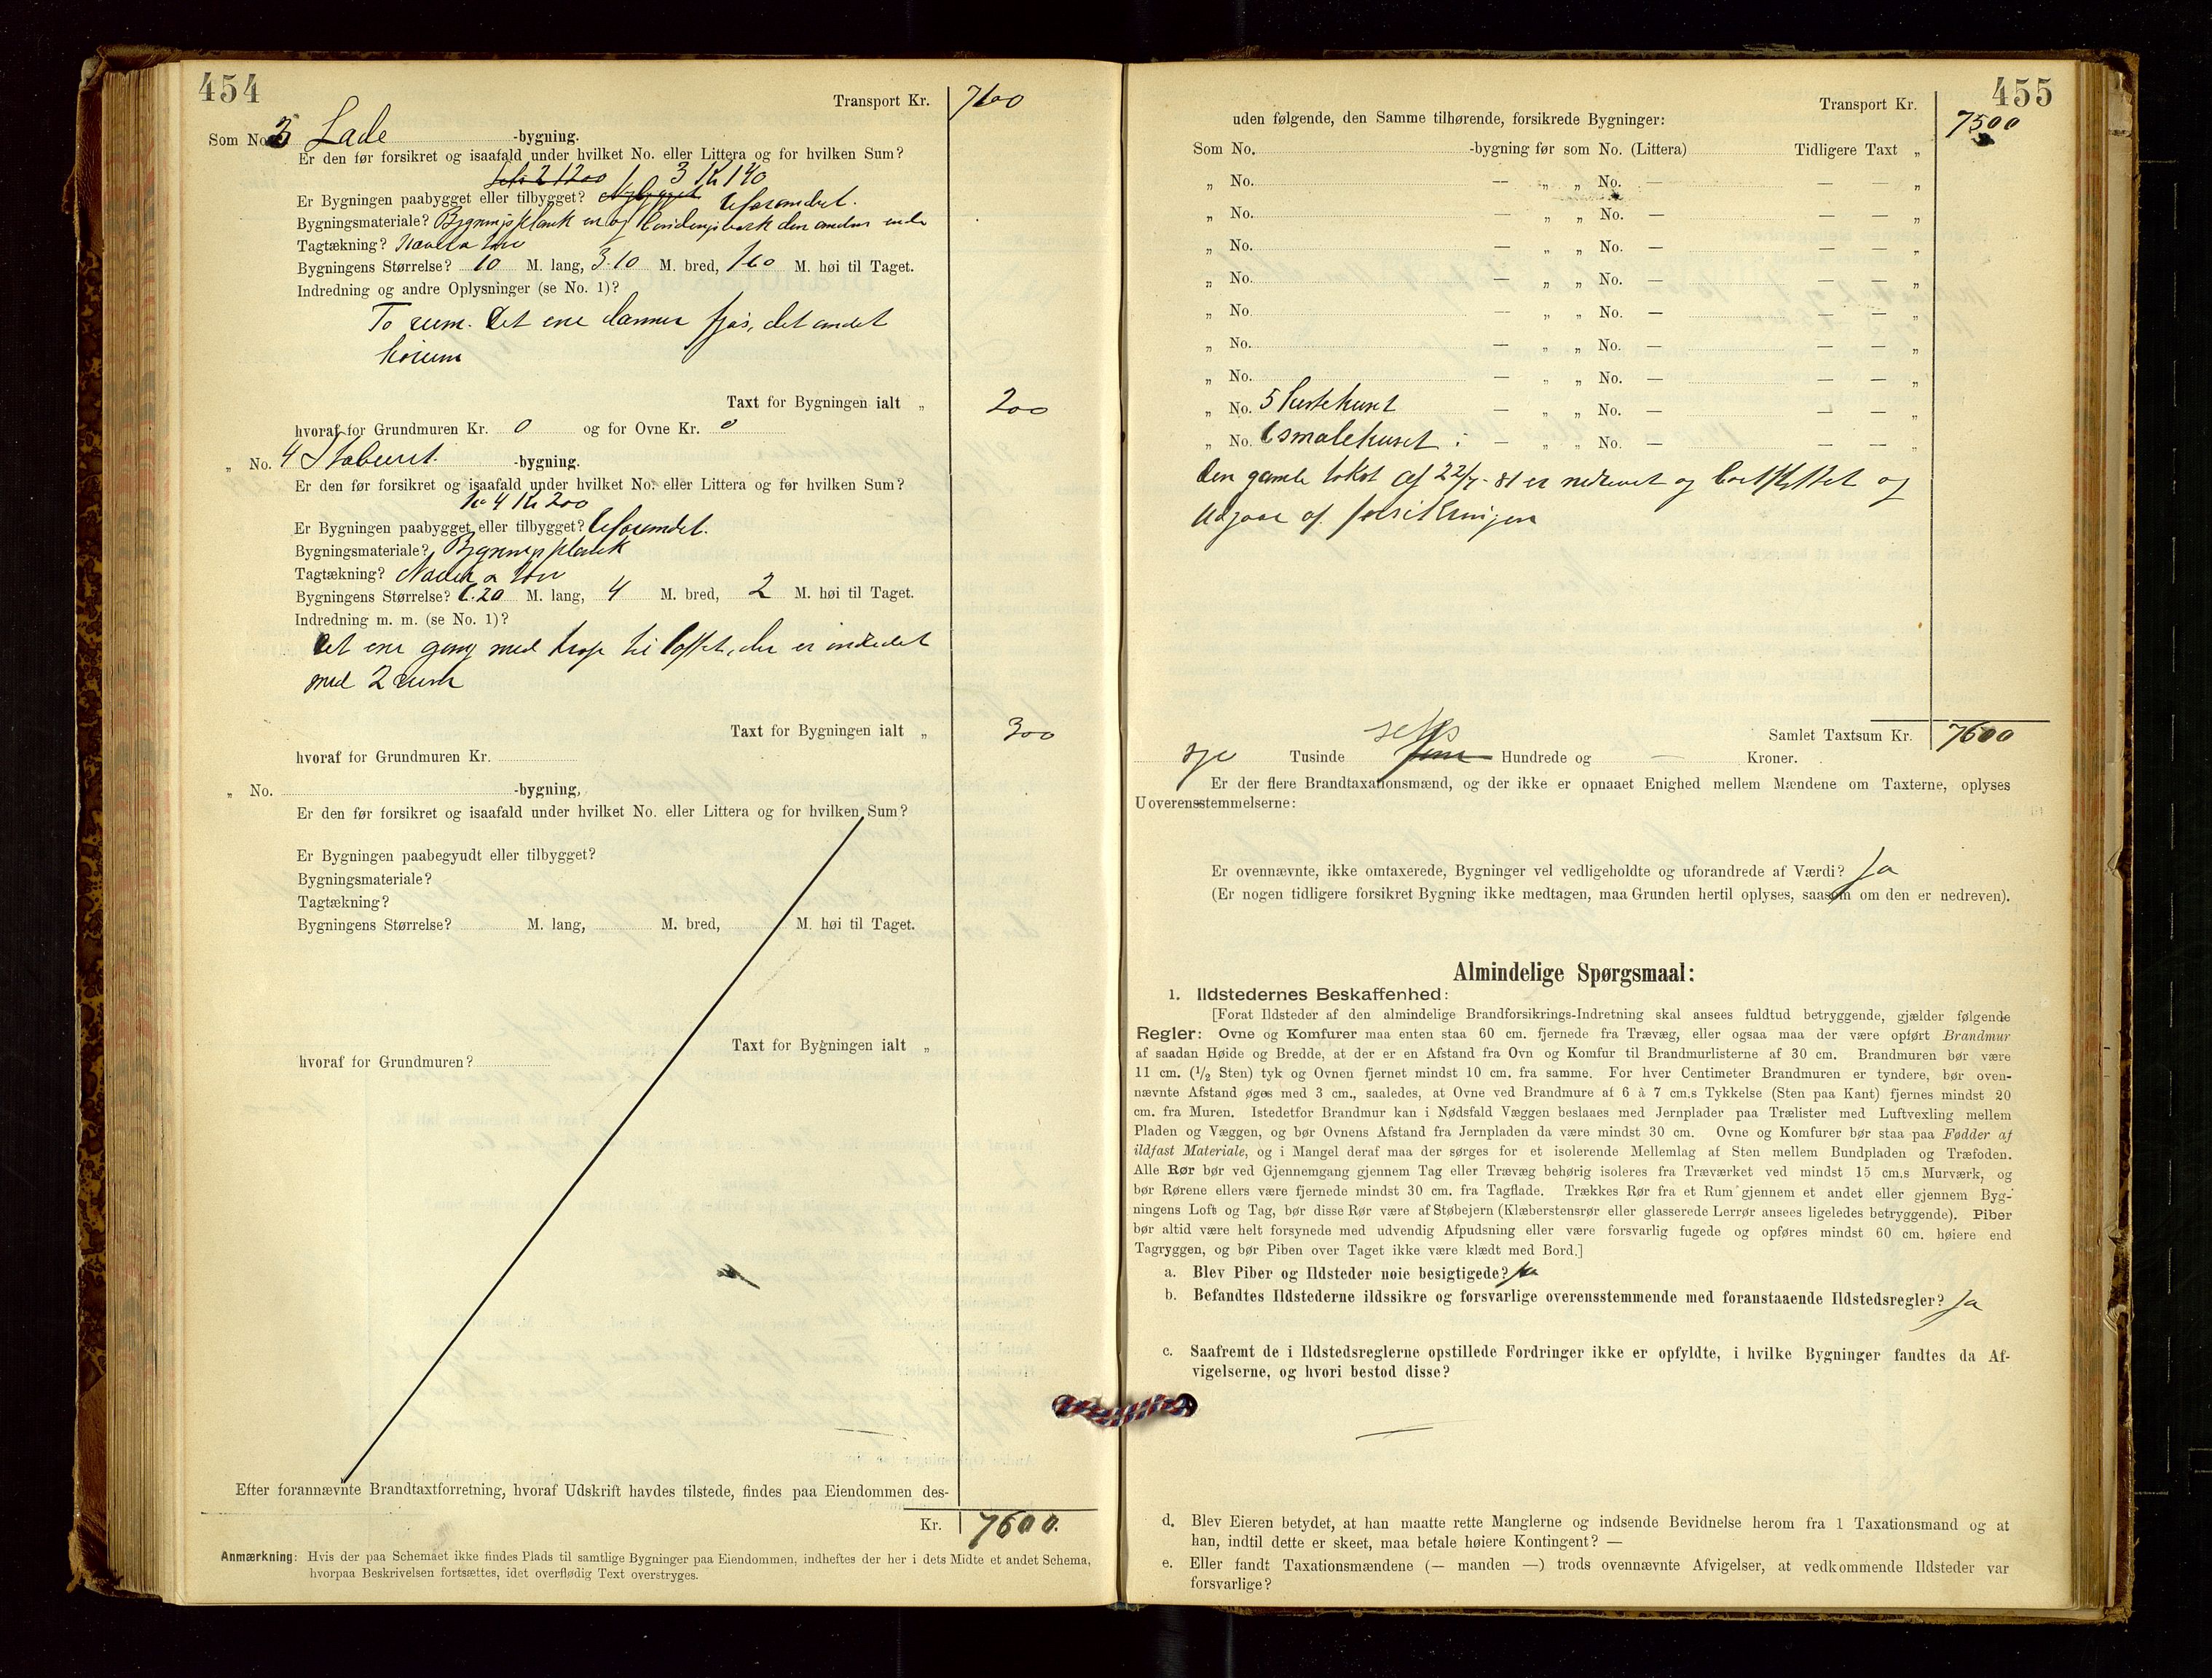 454
Transport Kr. 7100
Som No. 3 Lade -bygning.
Er den før forsikret og isaafald under hvilket No. eller Littera og for hvilken Sum?
3 Kr 140
Er Bygningen paabygget eller tilbygget? Uforandret.
Bygningsmateriale? Bygningsplank en og bindingsverk den anden ende
Tagtækning? Næver o torv
Bygningens Størrelse? 10 M. lang, 3.10 M. bred, 160 M. høi til Taget.
Indredning og andre Oplysninger (se No. 1)?
To rum. Det ene danner fjøs, det andet
hørum
Taxt for Bygningen ialt „ 200
hvoraf for Grundmuren Kr. 0 og for Ovne Kr. 0
„ No. 4 Staburet -bygning.
Er den før forsikret og isaafald under hvilket No. eller Littera og før hvilken Sum?
No 4 Kr 200
Er Bygningen paabygget eller tilbygget? Uforandet.
Bygningsmateriale? Bygningsplank
Tagtækning? Næver o torv
Bygningens Størrelse? 6.20 M. lang, 4 M. bred, 2 M. høi til Taget.
Indredning m. m. (se No. 1)?
Det ene gang med trap til loftet, der er indredet
med 2 rum
Taxt for Bygningen ialt „ 300
hvoraf for Grundmuren Kr.
„ No. -bygning,
Er den før forsikret og isaafald under hvilket No. eller Littera og for hvilken Sum?
Er Bygningen paabegyudt eller tilbygget?
Bygningsmateriale?
Tagtækning?
Bygningens Størrelse? M. lang, M. bred, M. høi til Taget.
Taxt for Bygningen ialt „
hvoraf for Grundmuren?
Efter forannævnte Brandtaxtforretning, hvoraf Udskrift havdes tilstede, findes paa Eiendommen des-
Kr. 7600.
Anmærkning: Hvis der paa Schemaet ikke findes Plads til samtlige Bygninger paa Eiendommen, indheftes der her i dets Midte et andet Schema,
hvorpaa Beskrivelsen fortsættes, idet overflødig Text overstryges.
455
Transport Kr. 7500
uden følgende, den Samme tilhørende, forsikrede Bygninger:
Som No. -bygning før som No. (Littera) Tidligere Taxt „
„ No. — „ „ No. — — — „
„ No. — „ „ No. — — — „
„ No. — „ „ No. — — — „
„ No. — „ „ No. — — — „
„ No. — „ „ No. — — — „
„ No. — „ „ No. — — — „
„ No. — „ „ No. — — — „
„ No. 5 — „ „ No. — — — „
„ No. 6 smalehuset : — „ „ No. — — — „
den gamle takst af 22/7-81 er nedrevet og bortflyttet og
Udgaar af forsikringen
Samlet Taxtsum Kr. 7600
syv Tusinde seks Hundrede og — Kroner.
Er der flere Brandtaxationsmænd, og der ikke er opnaaet Enighed mellem Mændene om Taxterne, oplyses
Uoverensstemmelserne:
Er ovennævnte, ikke omtaxerede, Bygninger vel vedligeholdte og uforandrede af Værdi? Ja
(Er nogen tidligere forsikret Bygning ikke medtagen, maa Grunden hertil oplyses, saasom om den er nedreven).
Almindelige Spørgsmaal:
1. Ildstedernes Beskaffenhed:
[Forat Ildsteder af den almindelige Brandforsikrings-Indretning skal ansees fuldtud betryggende, gjælder følgende
Regler: Ovne og Komfurer maa enten staa 60 cm. fjernede fra Trævæg, eller ogsaa maa der være opført Brandmur
af saadan Høide og Bredde, at der er en Afstand fra Ovn og Komfur til Brandmurlisterne af 30 cm. Brandmuren bør være
11 cm. (1/2 Sten) tyk og Ovnen fjernet mindst 10 cm. fra samme. For hver Centimeter Brandmuren er tyndere, bør oven-
nævnte Afstand øges med 3 cm., saaledes, at Ovne ved Brandmure af 6 à 7 cm.s Tykkelse (Sten paa Kant) fjernes mindst 20
cm. fra Muren. Istedetfor Brandmur kan i Nødsfald Væggen beslaaes med Jernplader paa Trælister med Luftvexling mellem
Pladen og Væggen, og bør Ovnens Afstand fra Jernpladen da være mindst 30 cm. Ovne og Komfurer bør staa paa Fødder af
ildfast Materiale, og i Mangel deraf maa der sørges for et isolerende Mellemlag af Sten mellem Bundpladen og Træfoden.
Alle Rør bør ved Gjennemgang gjennem Tag eller Trævæg behørig isoleres fra Træværket ved mindst 15 cm.s Murværk, og
bør Rørene ellers være fjernede mindst 30 cm. fra Tagflade. Trækkes Rør fra et Rum gjennem et andet eller gjennem Byg-
ningens Loft og Tag, bør disse Rør være af Støbejern (Klæberstensrør eller glasserede Lerrør ansees ligeledes betryggende). Piber
bør altid være helt forsynede med udvendig Afpudsning eller være forsvarlig fugede og opføres mindst 60 cm. høiere end
Tagryggen, og bør Piben over Taget ikke være klædt med Bord.]
a. Blev Piber og Ildsteder noie besigtigede? Ja
b. Befandtes Ildstederne ildssikre og forsvarlige overensstemmende med foranstaaende Ildstedsregler? Ja
c. Saafremt de i Ildstedsreglerne opstillede Fordringer ikke er opfyldte, i hvilke Bygninger fandtes da Af-
vigelserne, og hvori bestod disse?
d. Blev Eieren betydet, at han maatte rette Manglerne og indsende Bevidnelse herom fra 1 Taxationsmand og at
han, indtil dette er skeet, maa betale høiere Kontingent? —
e. Eller fandt Taxationsmændene (— manden —) trods ovennævnte Afvigelser, at vedkommende Ildsteder var
forsvarlige?